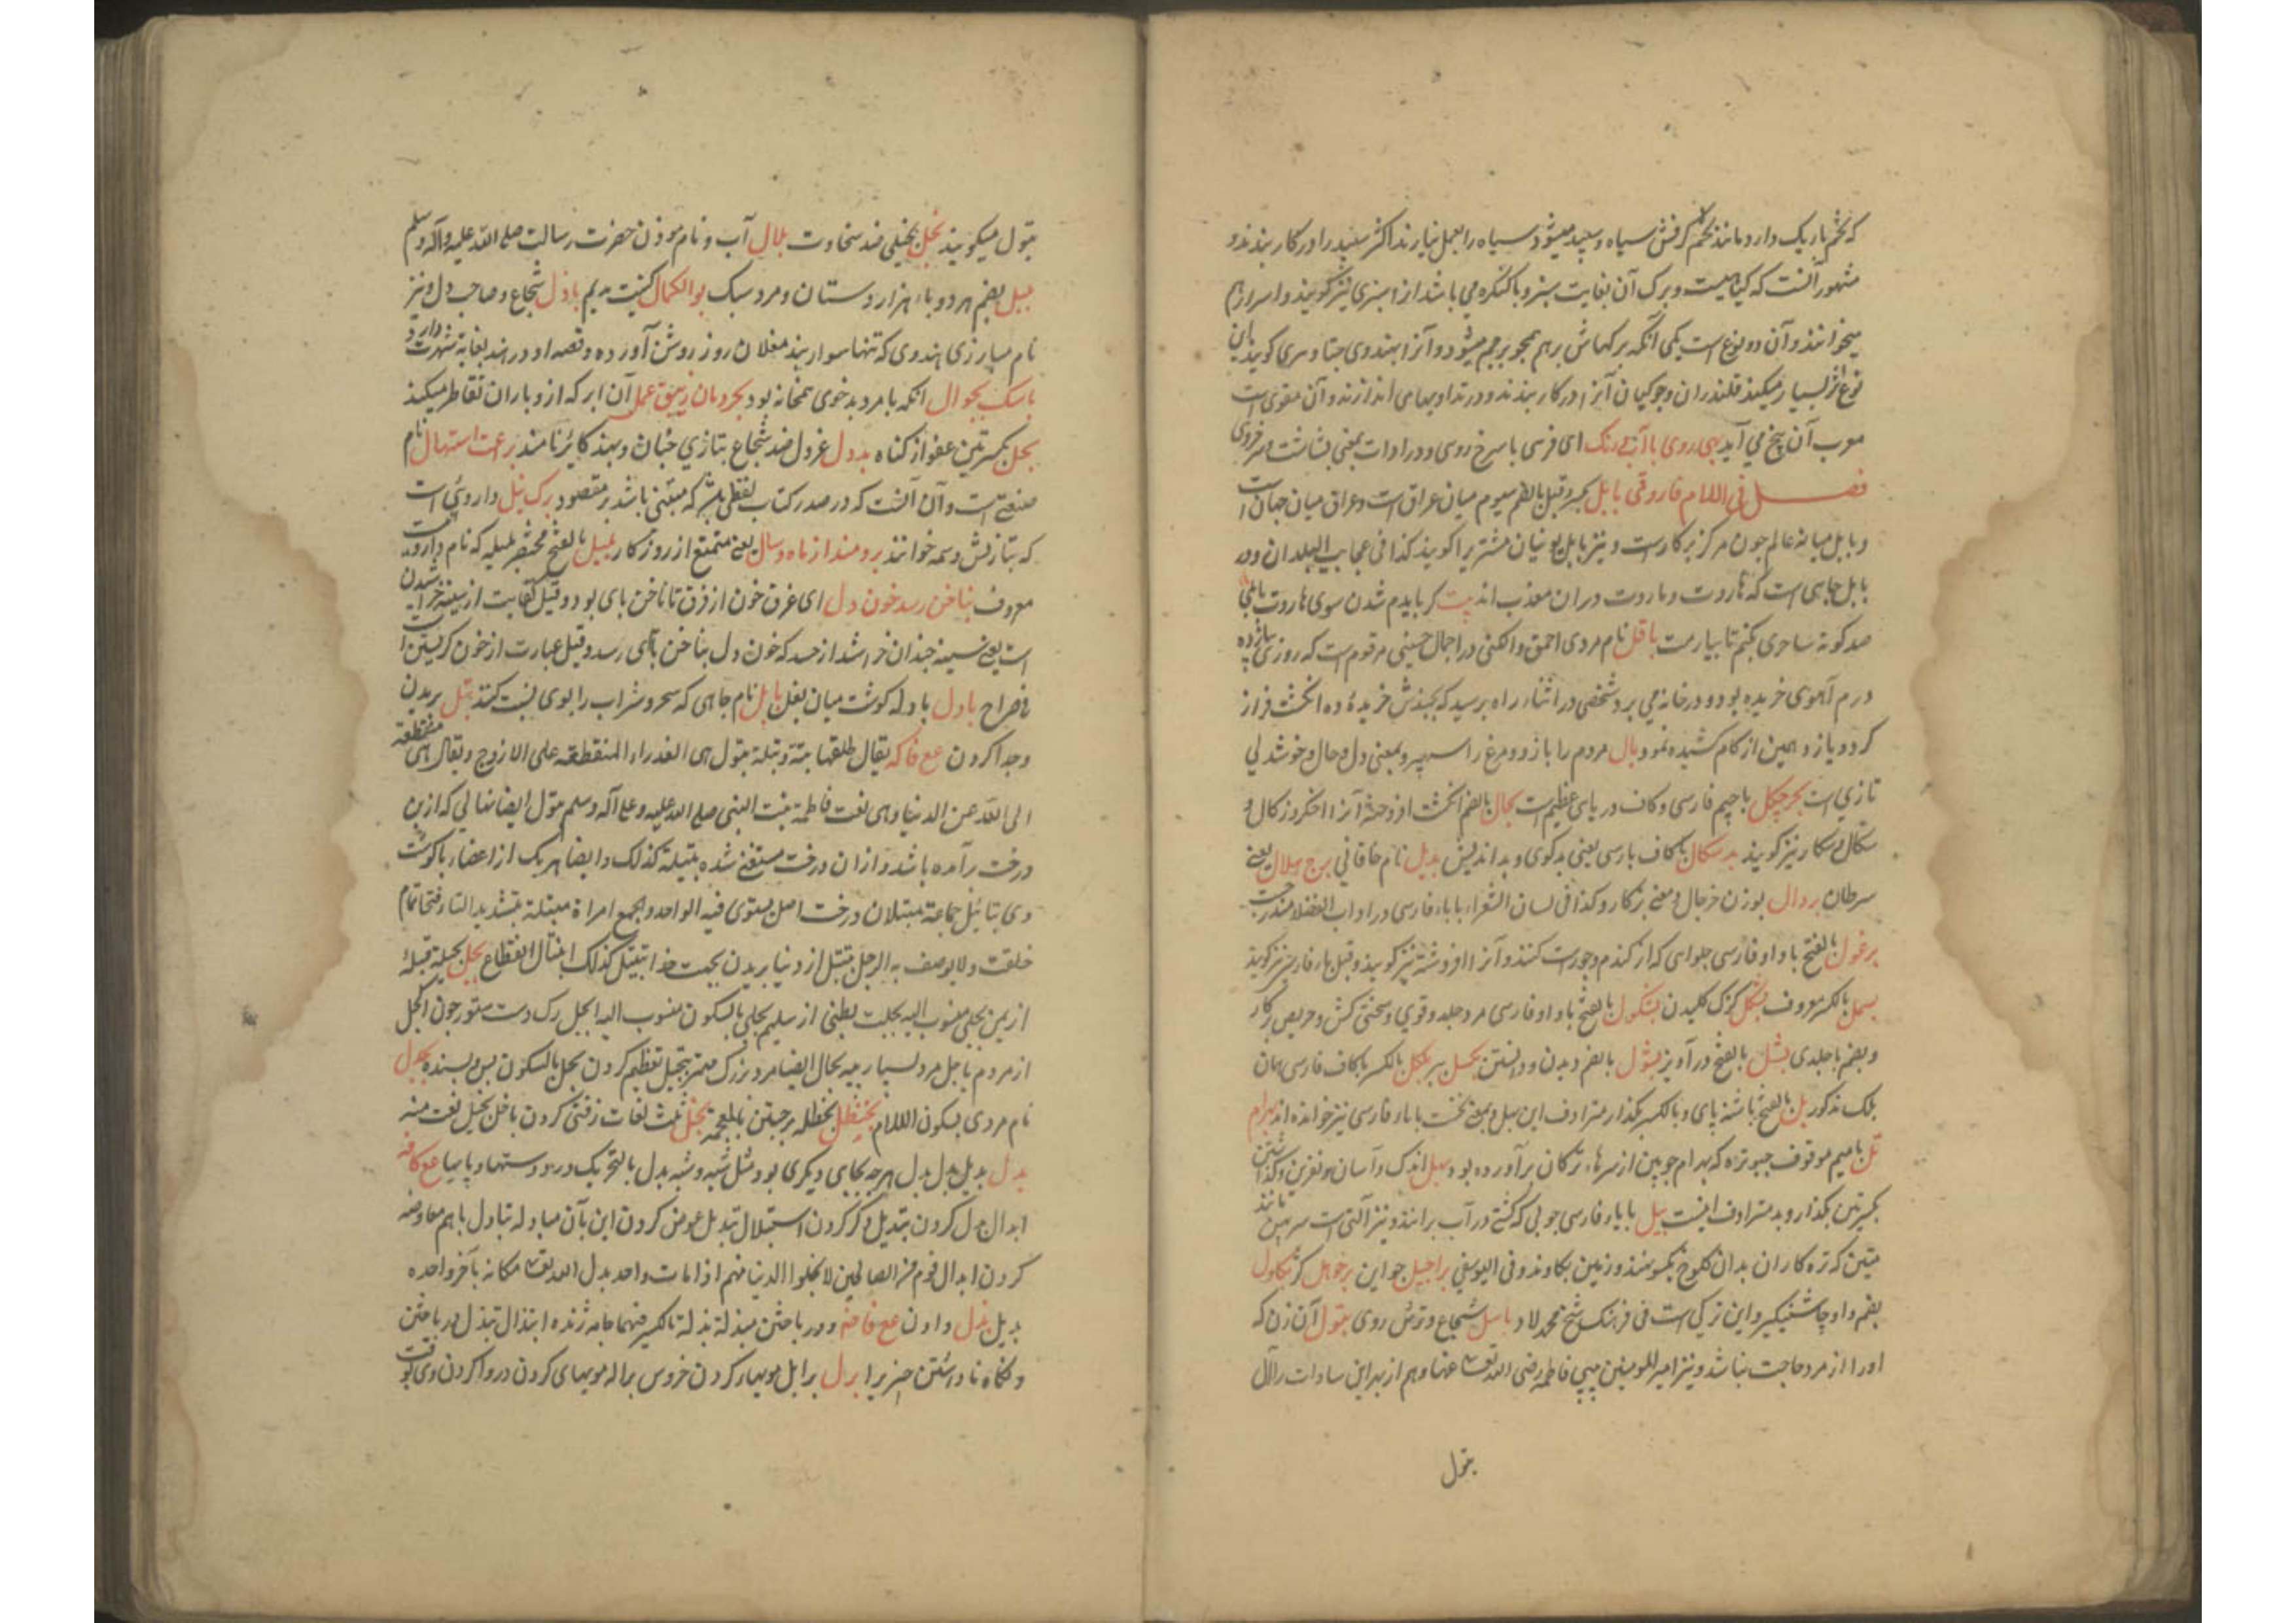 که تخم باریک دارد مانند تخم کرفش سیاه و سپید میشود سیاه را بعمل نیارند اکثر سپید را در کار بندند و
مشهور آنست که کیاهیست و برک آن بغایت سبز و با کنکره می باشد از اسبزی نیز کویند و اسرار هم
میخوانند و آن دو نوع است یکی آنکه برکهاش برهم همجو برجم میشود و آنرا بهندوی جتا و سری کویند این
نوع اثر بسیار میکند قلندران و جوکیان آنرا در کار بندند و در تداویهای اندازند و آن مقوی است
معرب آن بنج می آید بهی روی با آبی رنک ای فرسی با سرخ روی و در ادات بمعنی بشاشت و سرخروی
فصل فی اللام فاروقی بابل بکسر و قیل بالضم سیوم میان عراق است و عراق میان جهان است
و بابل میانهٔ عالم چون مرکز پرکارست و نیز بابل یونیان مشتریرا کویند کذا فی عجایب البلدان و در
بابل چاهی است که هاروت و ماروت دران معذب اند بیت کر بایدم شدن سوی هاروت بابلی
صد کونه ساحری بکنم تا بیارمت باقل نام مردی احمق و الکنی در اجمال حسینی مرقوم است که روزی یازده
درم آهوی خریده بود و در خانه می برد شخصی در اثناء راه برسید که بچندش خریدهٔ ده انکشت فراز
کرد و یازدهمین از کام کشیده نمود بال مردم را بازو و مرغ را سپهر و بمعنی دل و حال و خوشدلی
تازی است بحر چیکل با جیم فارسی و کاف دریای عظیم است بجال بالضم انکشت افروخته آنرا اخکر و زکال و
سکال و سکار نیز کویند بدسکال با کاف پارسی یعنی بدکوی و بداندیش بدیل نام خاقانی برج هلال یعنی
سرطان بردال بوزن خرجال و معنی پرکار و کذا فی لسان الشعراء با باء فارسی در اداب الفضلا مندرجست
برغول بالفتح با واو فارسی حلوای که از کندم و جورست کنند و آنرا افروشه نیز کویند و قیل باء فارسی نیز کویند
بسمل بالکسر معروف بشکل کزک کلیدن بشکول بالفتح با واو فارسی مرد جلد و قوی و سختی کش و حریص در کار
و بضم با جلدی بشل بالفتح درآویز بشول بالضم دیدن و دانستن بکسل ببر بکل بالکسر با کاف فارسی همان
بلک مذکور بل بالفتح پاشنهٔ پای و بالکسر بکذار مترادف این بهل و بمعنی نخست با باء فارسی نیز خوانده اند بهرام
تل با میم موقوف چبوتره که بهرام جوبین از سرهاء ترکان برآورده بود بهل اندک و آسان و نفرین و کذاشتن
بکسرتین بکذار و بد مترادف اینست بیل با یاء فارسی چوبی که کشتی در آب برانند و نیز آلتی است سر بهن مانند
متین که تره کاران بدان کلوخ بکوبند و زمین بکاوند و فی الیوسفی براجیل جواین برخوهل کژ بکاول
بضم واو چاشنیکیر و این ترکی است فی فرهنک شیخ محمد لاد باسل شجاع و ترش روی بتول آن زن که
او را از مرد حاجت نباشد و نیز امیر المومنین بیبی فاطمه رضی الله تعالی عنها و هم از بهر این سادات را آل
بتول
بتول میکویند بخل بخیلی ضد سخاوت بلال آب و نام موذن حضرت رسالت صلی الله علیه و آله وسلم
بلبل بضم هر دو باء هزار دستان و مرد سبک بوالکمال کنیت مریم باذل شجاع و صاحب دل و نیز
نام مبارزی هندوی که تنها سوار بند مغلان روز روشن آورده و قصه او در هند بغایة شهرت دارد
باسک بجوال انکه با مرد بدخوی همخانه بود بحردمان زیبق عمل آن ابر که ازو باران تقاطر میکند
بحل بکسرتین عفو از کناه بددل غردل ضد شجاع بتازی جبان و بهند کایر نامند برعت استهلال نام
صنعتی است و آن آنست که در صدر کتاب لفظی باشد که مبتنی باشد بر مقصود برک نیل داروئی است
که بتازیش وسمه خوانند برومند از ماه و سال یعنی متمتع از روزکار بلیل بالفتح مختصر بلیله که نام داروست
معروف بناخن رسد خون دل ای غرق خون از فرق تا ناخن پای بود و قیل کفایت از سینه خراشیدن
است یعنی سینه چندان خراشد از حسد که خون دل بناخن پای رسد و قیل عبارت از خون کریستن است
ف صراح بادل بادله کوشت میان بغل بابل نام جاهی که سحر و شراب را بوی نسبت کنند بتل بریدن
و جدا کردن مع فا که یقال طلقها بتة و بتلة بتول هی العذراء المنقطعة علی الازوج و یقال هی منقطعة
الی الله عن الدنیا و هی نعت فاطمة بنت النبی صلی الله علیه و علی آله وسلم بتول ایضا نهالی که از بن
درخت برآمده باشد و از ان درخت مستغنی شده بتیلة کذلک و ایضا هر یک از اعضاء با کوشت
وی بتائل جماعة مبتلان درخت اصل یستوی فیه الواحد و الجمع امراة مبتلة بتشدید التاء و فتحها تمام
خلقت و لا یوصف به الرجل تبتل از دنیا بریدن بجهت خدا تبتیل کذلک ابتال انقطاع بجل بجیلة قبیلهٔ
از یمن بجلی منسوب الیه بجلت بطنی از سلیم بجلی بالسکون منسوب الیه ابجل رک دست ستور جون اکحل
از مردم باجل مرد بسیار پیه بجال ایضا مرد بزرک مهتر بتجیل تعظیم کردن بجل بالسکون بس و بسنده بحدل
نام مردی بسکون اللام بخنظل بخظله برجستن بالمعجمة بخل ثلث لغات زفتی کردن باخل بخیل نعت منه
بدل بدیل بدل بدل هرجه بجای دیکری بود و مثل شبه و شبه بدل بالتحریک درد دستها و پایها مع کافه
ابدال بدل کردن تبدیل دکر کردن استبدال تبدیل عوض کردن این بآن مبادله تبادل باهم معاوضه
کردن ابدال قوم من الصالحین لا یخلوا الدنیا منهم اذا مات واحد بدل الله تعالی مکانه باخر واحده
بدیل بذل دادن مع فا ضم و در باختن مبذلة بذلة بالکسر فیهما جامه ژنده ابتذال تبذل در باختن
و نکاه ناداشتن چیزیرا برل برایل مویهاء کردن خروس براله مویهای کردن در واکردن وی بوقت